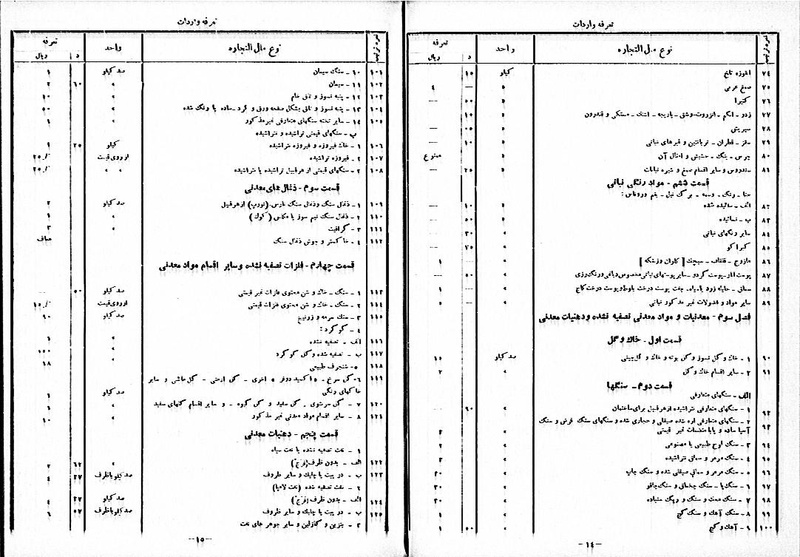 تعرفه واردات
نمره ترتیب نوع مال التجاره واحد تعرفه
د ریال
۷۴ کیلو ۱۵
۷۵ صمغ عربی » ۴
۷۶ کتیرا » ۵۰
۷۷ زدو - انگم - انزروت وشق - باریجه - اشک - مصطکی و قندرون » ۱۵
۷۸ » ۵۰
۷۹ سقز - قطران - تربانتین و قیرهای نباتی » ۱۰
۸۰ چرس - بنگ - حشیش و امثال آن » ممنوع
۸۱ سندروس و سایر اقسام صمغ و شیره نباتات » ۲۵
قسمت ششم - مواد رنگی نباتی
حنا - رنگ - وسمه - برگ نیل - بقم و روناس :
۸۲ الف - سائیده شده » ۱۰
۸۳ ب - نسائیده » ۵۰
۸۴ سایر رنگهای نباتی » ۳۰
۸۵ » ۷۵
۸۶ » ۱
۸۷ پوست انار - پوست گردو - سایر پوستهای نباتی مخصوص دباغی و رنگرزی » ۵۰
۸۸ سماق - مازو - جفت پوست درخت بلوط و پوست درخت کاج » ۱
۸۹ سایر مواد و محصولات غیر مذکور نباتی » ۵
فصل سوم - معدنیات و مواد معدنی تصفیه نشده و دهنیات معدنی
قسمت اول - خاک و گل
۹۰ ۱ - خاک و گل نسوز و گل بوته و خاک و گل چینی صد کیلو ۱۵
۹۱ ۲ - سایر اقسام خاک و گل » ۲
قسمت دوم - سنگها
الف - سنگهای متعارفی
۹۲ ۱ - سنگهای متعارفی نتراشیده از هر قبیل برای ساختمان » ۶۰
۹۳ ۲ - سنگهای متعارفی اره شده صیقلی و حجاری شده و سنگهای سنگ فرش و سنگ
آسیا ساده و یا با متعلقات غیر قیمتی » ۳
۹۴ ۳ - سنگ لوح طبیعی یا مصنوعی » ۳
۹۵ ۴ - سنگ مرمر و سماق نتراشیده » ۴
۹۶ ۵ - سنگ مرمر و سماق صیقلی شده و سنگ چاپ » ۲۰
۹۷ ۶ - سنگ پا - سنگ چخماق و سنگ چاقو » ۳۰
۹۸ ۷ - سنگ محک و سنگ و ریگ سنباده » ۳۰
۹۹ ۸ - سنگ آهک و سنگ گچ » ۱
۱۰۰ ۹ - آهک و گچ » ۵۰ ۱
- ۱۴ -
تعرفه واردات
نمره ترتیب نوع مال التجاره واحد تعرفه
د ریال
۱۰۱ ۱۰ - سنگ سیمان صد کیلو ۱
۱۰۲ ۱۱ - سیمان » ۶۰ ۲
۱۰۳ ۱۲ - پنبه نسوز و تالق خام » ۱۰
۱۰۴ ۱۳ - پنبه نسوز و تالق بشکل صفحه ورق و گرد - ساده یا رنگ شده » ۵۰
۱۰۵ ۱۴ - سایر تخته سنگهای متعارفی غیر مذکور » ۱
ب - سنگهای قیمتی تراشیده و نتراشیده
۱۰۶ ۱ - خاک فیروزه و فیروزه نتراشیده کیلو ۲۵ ۱
۱۰۷ ۲ - فیروزه تراشیده از روی قیمت ٪۲۵
۱۰۸ ۳ - سنگهای قیمتی از هر قبیل تراشیده یا نتراشیده » » ٪۲۵
قسمت سوم - ذغال های معدنی
۱۰۹ ۱ - ذغال سنگ و ذغال سنگ نارس (تورب) از هر قبیل صد کیلو ۲
۱۱۰ ۲ - ذغال سنگ نیم سوز یا مکلس (کوک) » ۱
۱۱۱ ۳ - گرافیت » ۳
۱۱۲ ۴ - خاکستر و جوش ذغال سنگ معاف
قسمت چهارم - فلزات تصفیه نشده و سایر اقسام مواد معدنی
۱۱۳ ۱ - سنگ - خاک و شن محتوی فلزات غیر قیمتی صد کیلو ۵۰
۱۱۴ ۲ - سنگ - خاک و شن محتوی فلزات قیمتی از روی قیمت ٪۱۵
۱۱۵ ۳ - سنگ سرمه و زرنیخ صد کیلو ۶۰
۴ - گوگرد :
۱۱۶ الف - تصفیه نشده » ۱
۱۱۷ ب - تصفیه شده و گل گوگرد » ۱۵۰
۱۱۸ ۵ - شنجرف طبیعی » ۱۸
۱۱۹ ۶ - گل سرخ - اکسید دوفر - اخری - گل ارمنی - گل ماشی و سایر
خاکهای رنگی صد کیلو ۱
۱۲۰ ۷ - گل سرشوی - گل سفید و گل گیوه - و سایر اقسام گلهای سفید » ۶
۱۲۱ ۸ - سایر اقسام مواد معدنی غیر مذکور » ۱۰
قسمت پنجم - دهنیات معدنی
۱ - نفت تصفیه نشده یا نفت سیاه
۱۲۲ الف - بدون ظرف » ۶۲ ۲
۱۲۳ ب - در پیت یا چلیک و سایر ظروف صد کیلو با ظرف ۲۷ ۴
۲ - نفت تصفیه شده (نفت لامپا)
۱۲۴ الف - بدون ظرف صد کیلو ۲۷ ۴
۱۲۵ ب - در پیت یا چلیک و سایر ظروف صد کیلو با ظرف ۵ ۶
۳ - بنزین و گازلین و سایر جوهر های نفت
- ۱۵ -